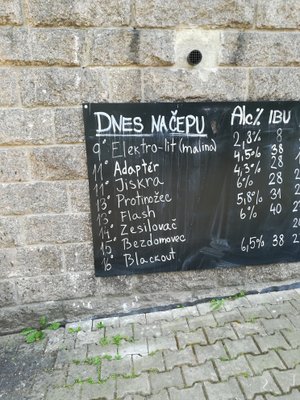 DNES NA ČEPU Alc% IBU
9° Elektro-lit (malina) 2,8% 8
11° Adaptér 4,5% 38
11° Jiskra 4,3% 28
13° Protirožec 6% 28
13° Flash 5,8% 31
14° Zesilovač 6% 40
15° Bezdomovec
16° Blackout 6,5% 38